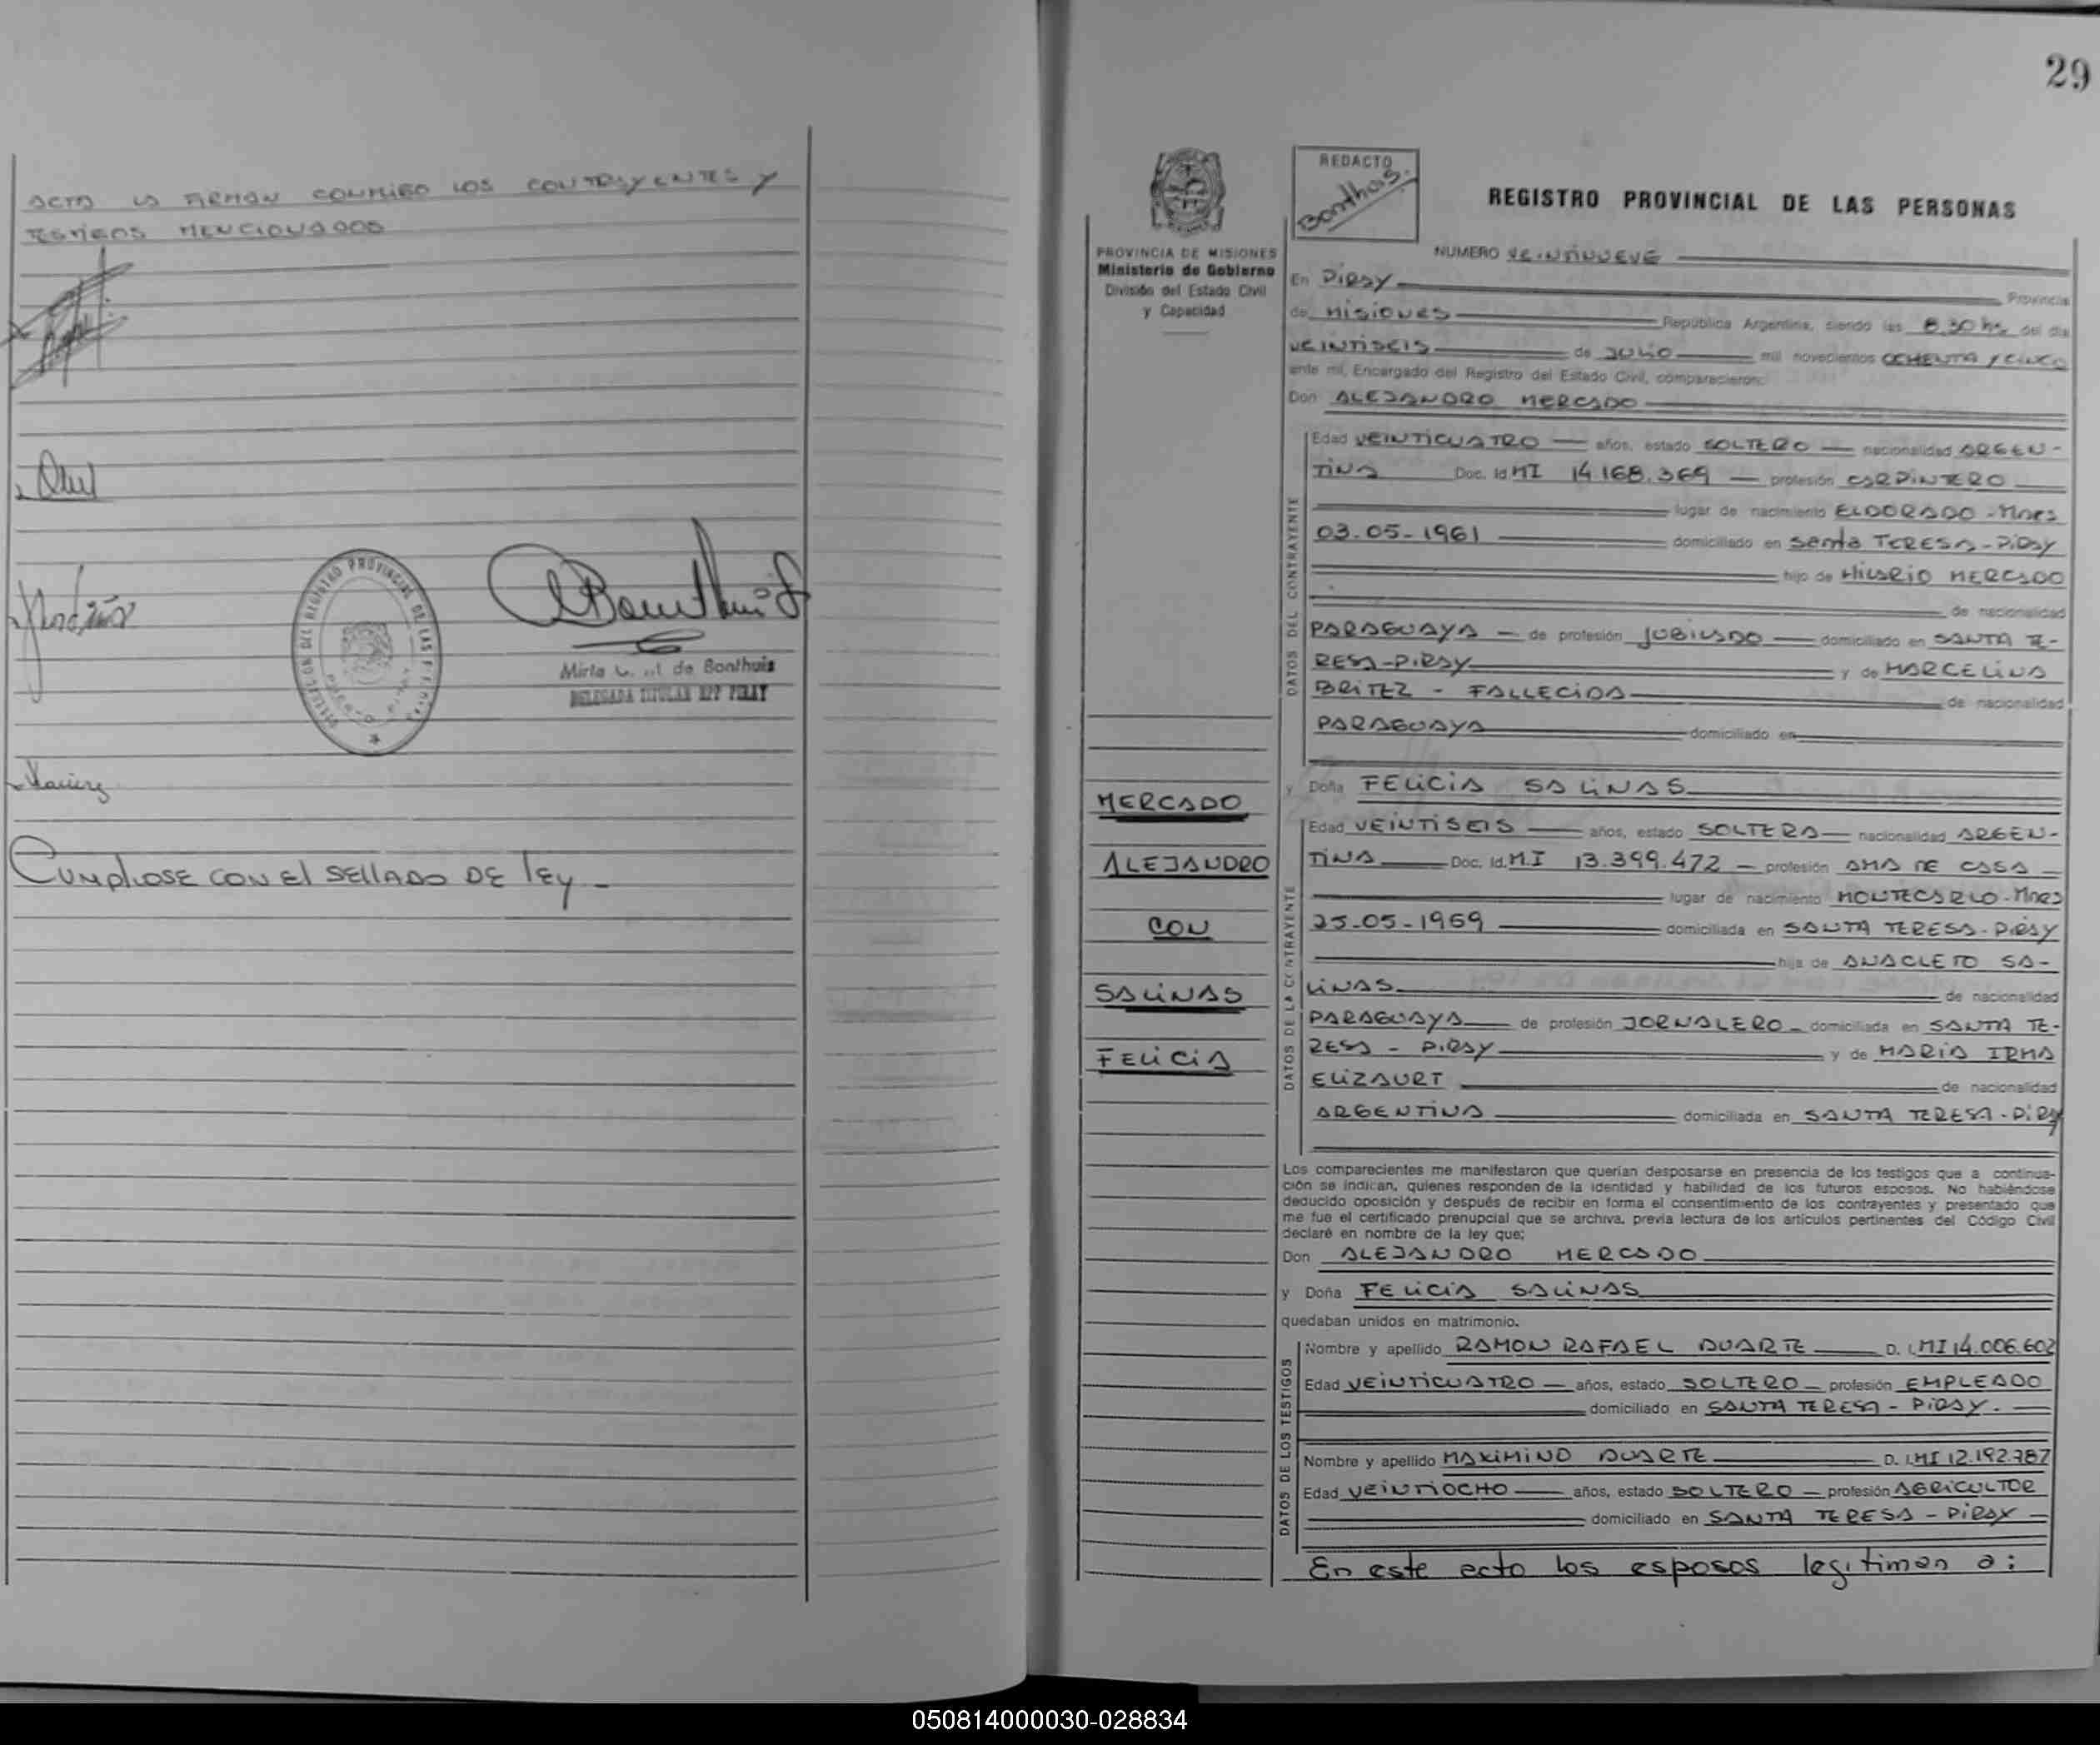 ACTA LA FIRMAN CONMIGO LOS CONTRAYENTES Y
TESTIGOS MENCIONADOS
Mirta de Bonthuis
DELEGADA TITULAR RPP PIRAY
CUMPLIOSE CON El SELLADO DE lEy -
29
REDACTO
Bonthuis.
REGISTRO PROVINCIAL DE LAS PERSONAS
PROVINCIA DE MISIONES
Ministerio de Gobierno
División del Estado Civil
y Capacidad
NUMERO VEINTINUEVE
En PIRAY Provincia
de MISIONES República Argentina, siendo las 8,30 hs del día
VEINTISEIS de JULIO mil novecientos OCHENTA Y CINCO
ante mí, Encargado del Registro del Estado Civil, comparecieron:
Don ALEJANDRO MERCADO
DATOS DEL CONTRAYENTE
Edad VEINTICUATRO años, estado SOLTERO nacionalidad ARGEN-
TINA Doc. Id. MI 14.168.369 profesión CARPINTERO
lugar de nacimiento ELDORADO - Mnes
03.05-1961 domiciliado en Santa TERESA-PIRAY
hijo de HILARIO MERCADO
de nacionalidad
PARAGUAYA de profesión JUBILADO domiciliado en SANTA TE-
RESA-PIRAY y de MARCELINA
BRITEZ - FALLECIDA de nacionalidad
PARAGUAYA domiciliado en
y Doña FELICIA SALINAS
DATOS DE LA CONTRAYENTE
Edad VEINTISEIS años, estado SOLTERA nacionalidad ARGEN-
TINA Doc. Id. M.I 13.399.472 profesión AMA DE CASA
lugar de nacimiento MONTECARLO-Mnes
25-05-1959 domiciliada en SANTA TERESA-PIRAY
hija de ANACLETO SA-
LINAS de nacionalidad
PARAGUAYA de profesión JORNALERO domiciliada en SANTA TE-
RESA - PIRAY y de MARIA IRMA
ELIZAURT de nacionalidad
ARGENTINA domiciliada en SANTA TERESA-PIRAY
MERCADO
ALEJANDRO
CON
SALINAS
FELICIA
Los comparecientes me manifestaron que querían desposarse en presencia de los testigos que a continua-
ción se indican, quienes responden de la identidad y habilidad de los futuros esposos. No habiéndose
deducido oposición y después de recibir en forma el consentimiento de los contrayentes y presentado que
me fue el certificado prenupcial que se archiva, previa lectura de los artículos pertinentes del Código Civil
declaré en nombre de la ley que;
Don ALEJANDRO MERCADO
y Doña FELICIA SALINAS
quedaban unidos en matrimonio.
DATOS DE LOS TESTIGOS
Nombre y apellido RAMON RAFAEL DUARTE D. I. MI 14.006.602
Edad VEINTICUATRO años, estado SOLTERO profesión EMPLEADO
domiciliado en SANTA TERESA - PIRAY.
Nombre y apellido MAXIMINO DUARTE D. I. MI 12.192.787
Edad VEINTIOCHO años, estado SOLTERO profesión AGRICULTOR
domiciliado en SANTA TERESA - PIRAY
En este acto los esposos legitiman a:
050814000030-028834